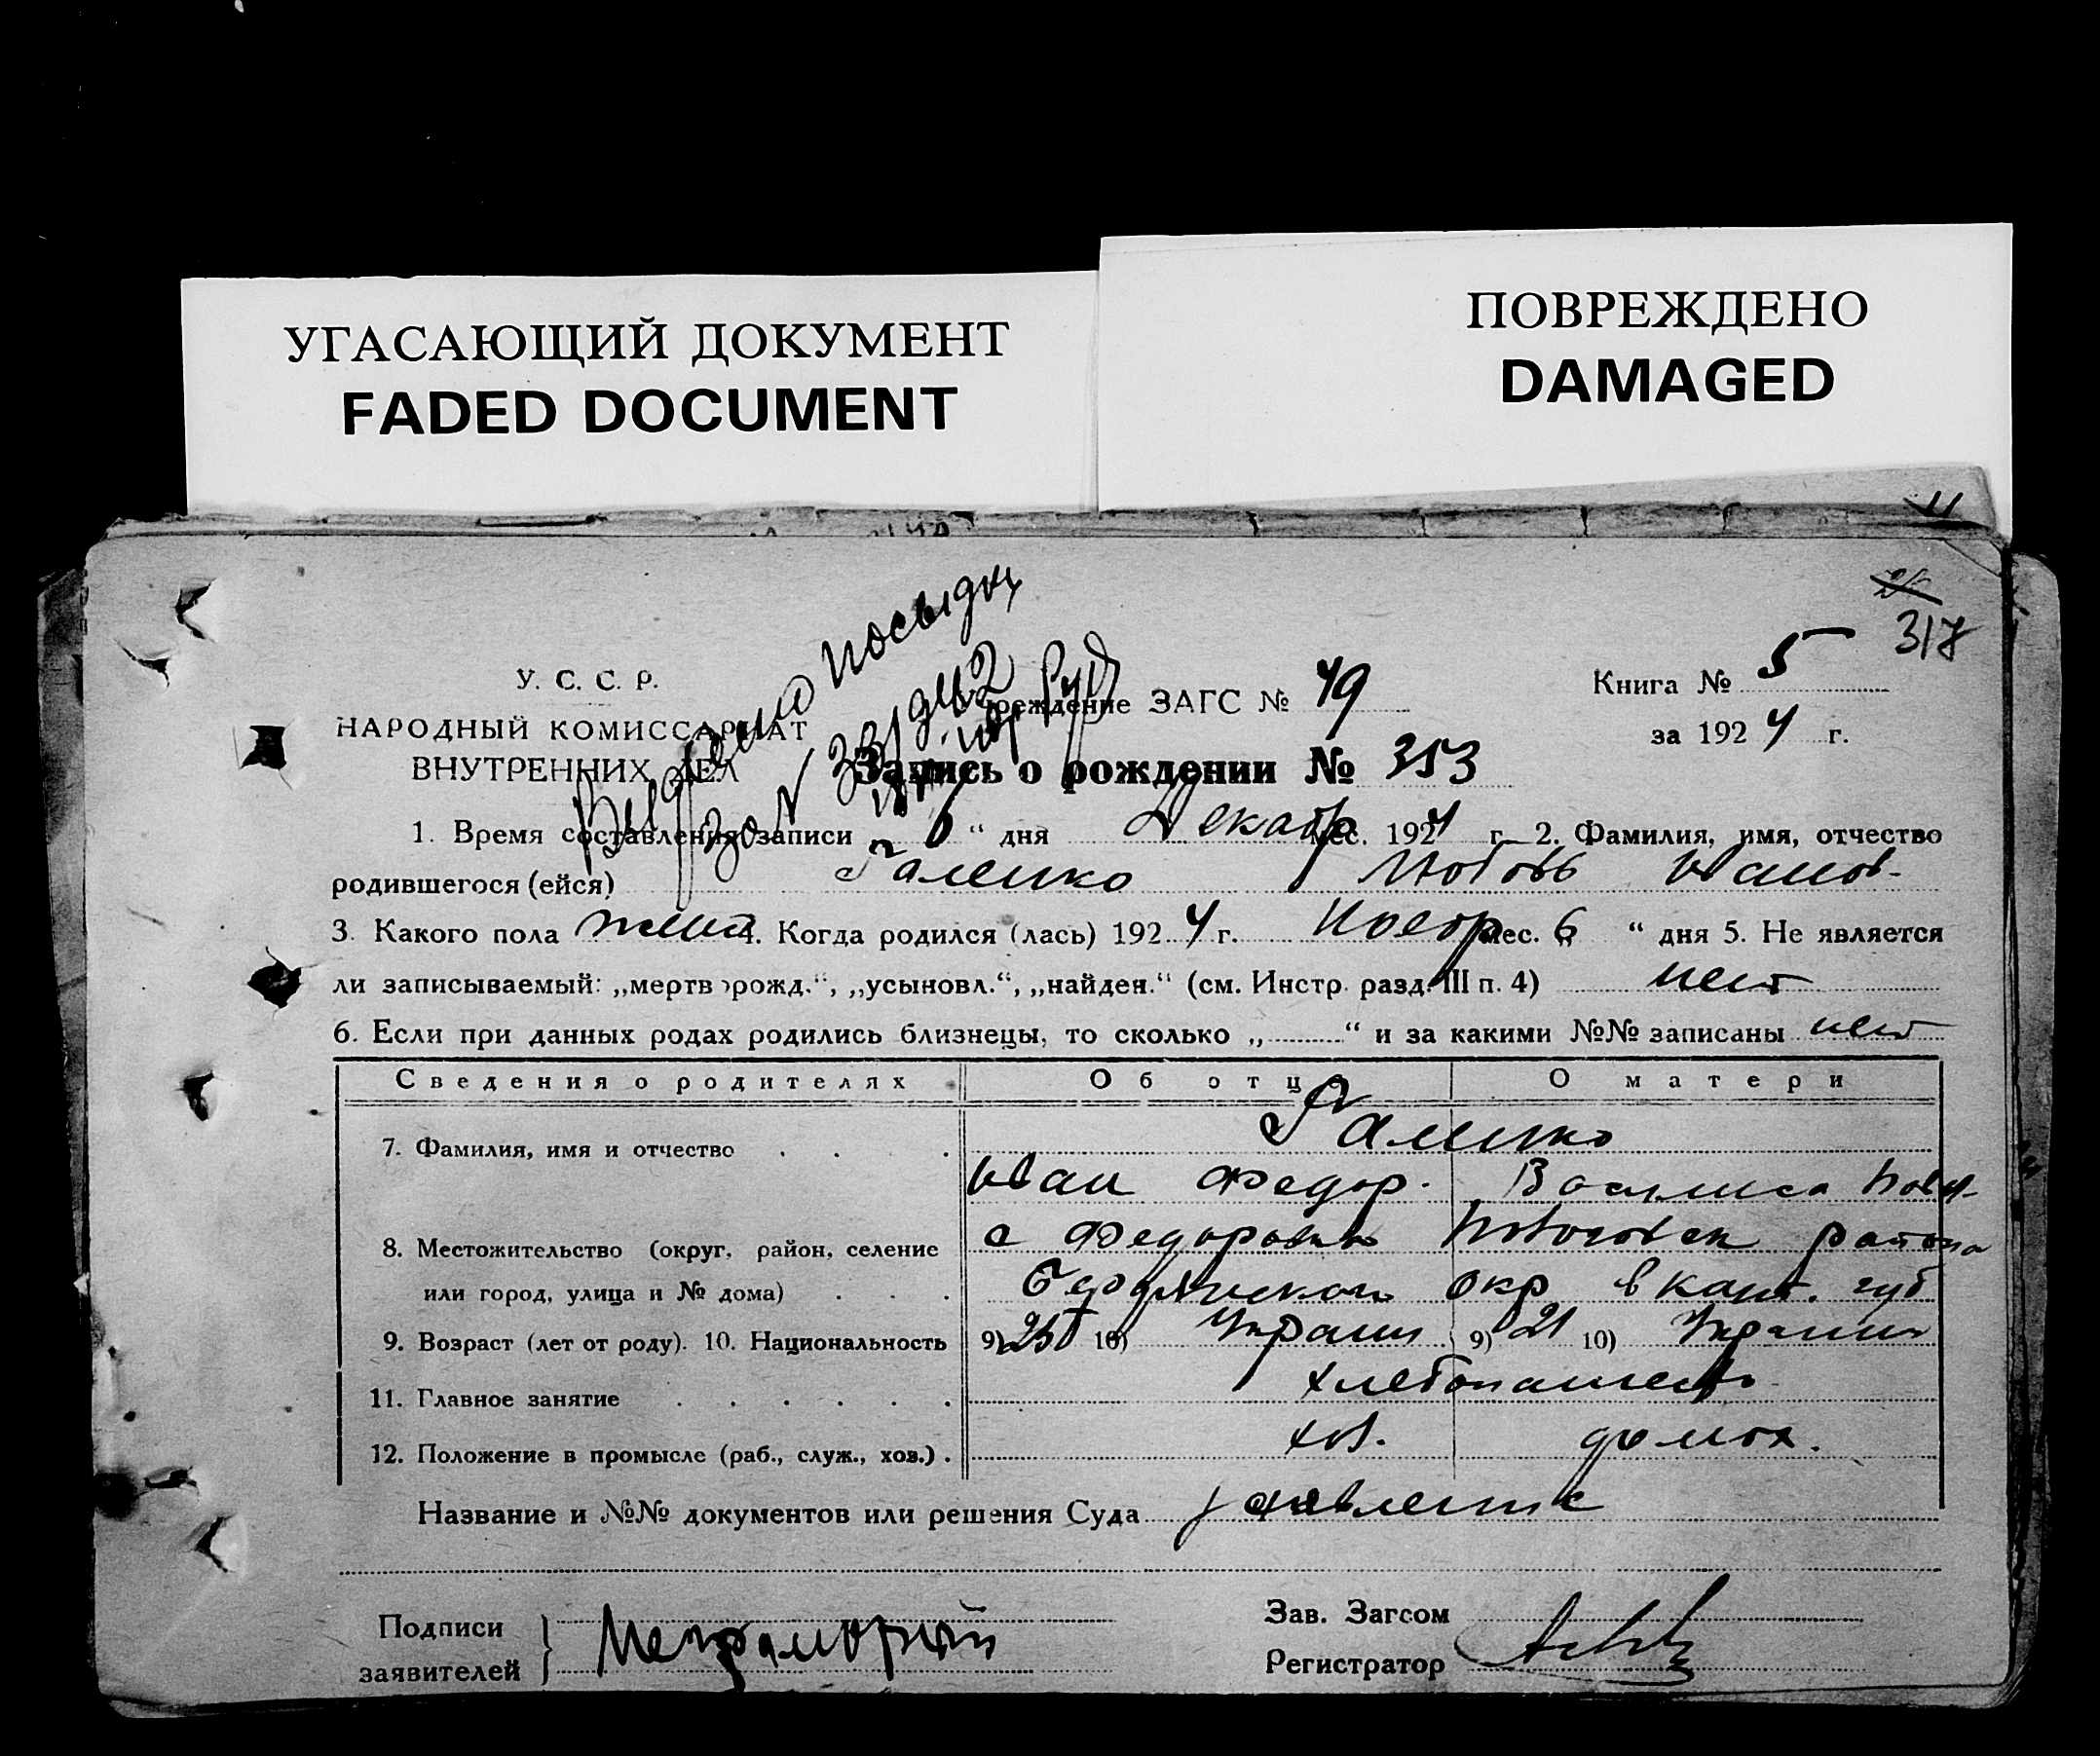 УГАСАЮЩИЙ ДОКУМЕНТ
FADED DOCUMENT
ПОВРЕЖДЕНО
DAMAGED
317
У. С. С. Р.
НАРОДНЫЙ КОМИССАРИАТ
ВНУТРЕННИХ ДЕЛ
ЗАГС № 49
Книга № 5
за 1924 г.
Запись о рождении № 353
1. Время составления записи 6 “ дня Декабр мес. 1924 г. 2. Фамилия, имя, отчество
родившегося (ейся) Галенко Любовь Иванов-
3. Какого пола жен 4. Когда родился (лась) 1924 г. Ноябр мес. 6 “ дня 5. Не является
ли записываемый: „мертворожд.“, „усыновл.“, „найден.“ (см. Инстр. разд. III п. 4) нет
6. Если при данных родах родились близнецы, то сколько „ “ и за какими №№ записаны нет
Сведения о родителях Об отце О матери
7. Фамилия, имя и отчество Галенко
Иван Федор. Василиса
8. Местожительство (округ, район, селение с Федоровка района
или город, улица и № дома) Бердянского Окр Екат. губ
9. Возраст (лет от роду). 10. Национальность 9) 25 10) Украин 9) 21 10) Украин
11. Главное занятие хлебопашество
12. Положение в промысле (раб., служ., хоз.) хоз. домох.
Название и №№ документов или решения Суда заявление
Подписи
заявителей } Неграмотный
Зав. Загсом
Регистратор